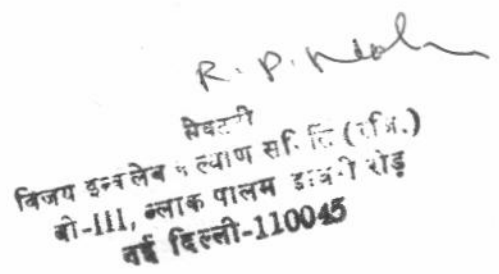 R. P.
सैक्टरी
विजय इन्कलेब कल्याण समिति (रजि.)
बी-III, ब्लाक पालम डाबड़ी रोड़
नई दिल्ली-110045